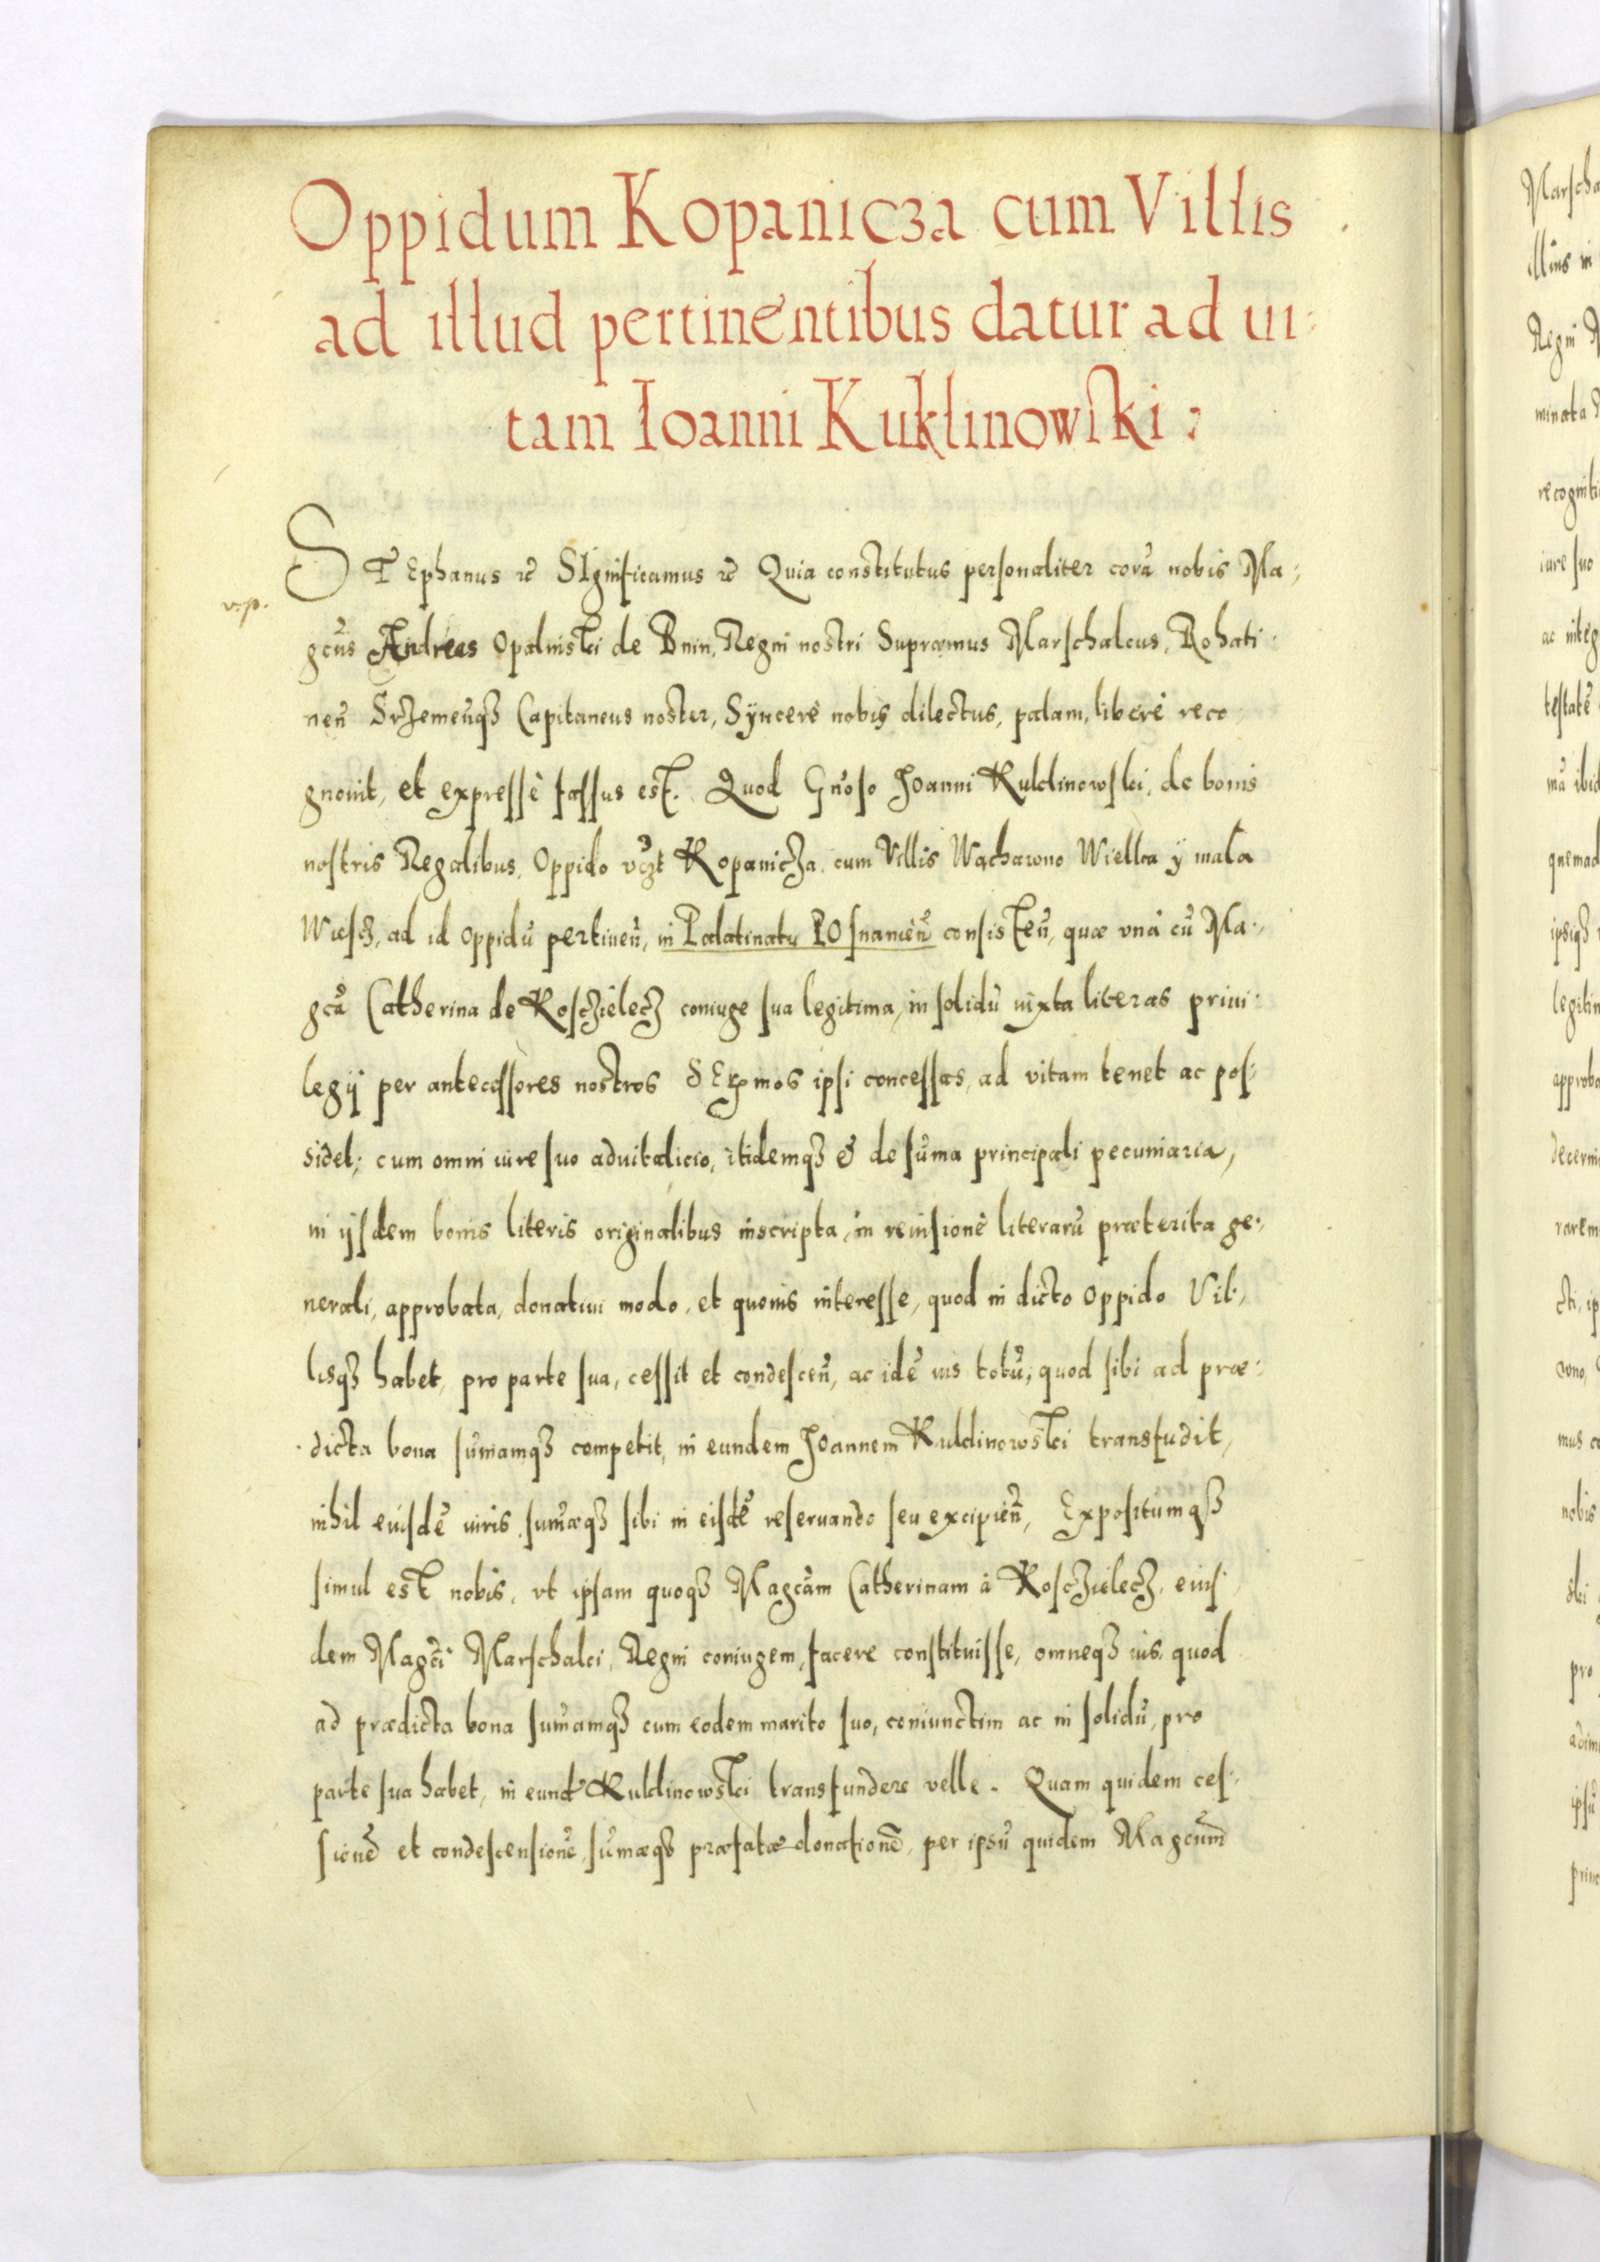 Oppidum Kopanicza cum Villis
ad illud pertinentibus datur ad ui:
tam Ioanni Kuklinowski
v.p.
STEphanus &c SIgnificamus &c Quia constitutus personaliter corā nobis Ma:
gcūs Andreas Opalinski de Bnin, Regni nostri Supræmus Marschalcus, Rohati:
neñ Srzemeñqз Capitaneus noster, Syncerè nobis dilectus, palam, liberè reco
gnouit, et expressè fassus est. Quod Gñoso Joanni Kuklinowski, de bonis
nostris Regalibus, Oppido vczt Kopanicza, cum Villis Wąchawno Wielka y mala
Wiesz, ad id oppidū pertineñ, in Palatinatu POsnanień consisteñ, quæ vnà cū Ma:
gcā Catherina de Kosczielecz coniuge sua legitima, in solidū iuxta literas priui:
legij per antecessores nostros SErmos ipsi concessas, ad vitam tenet ac pos:
sidet; cum omni iure suo aduitalicio, itidemqз & de sūma principali pecuniaria,
in ijsdem bonis literis originalibus inscripta, in reuisionē literarū præterita ge:
nerali, approbata, donatiui modo, et quouis interesse, quod in dicto Oppido Vil:
lisqз habet, pro parte sua, cessit et condesceñ, ac idē ius totū, quod sibi ad præ:
dicta bona sūmamqз competit, in eundem Joannem Kuklinowski transfudit,
nihil euisdē iuris, sūmæqз sibi in eisdē reseruando seu excipień, Expositumqз
simul est nobis, vt ipsam quoqз Magcām Catherinam à Kosczielecz, eius:
dem Magci Marschalci, Regni coniugem, facere constituisse, omneqз ius, quod
ad prædicta bona sūmamqз cum eodem marito suo, coniunctim ac in solidū, pro
parte sua habet, in eundē Kuklinowski transfundere velle. Quam quidem ces:
sionē et condescensionē, sūmæqз præfatæ donationē, per ipsū quidem Magcum